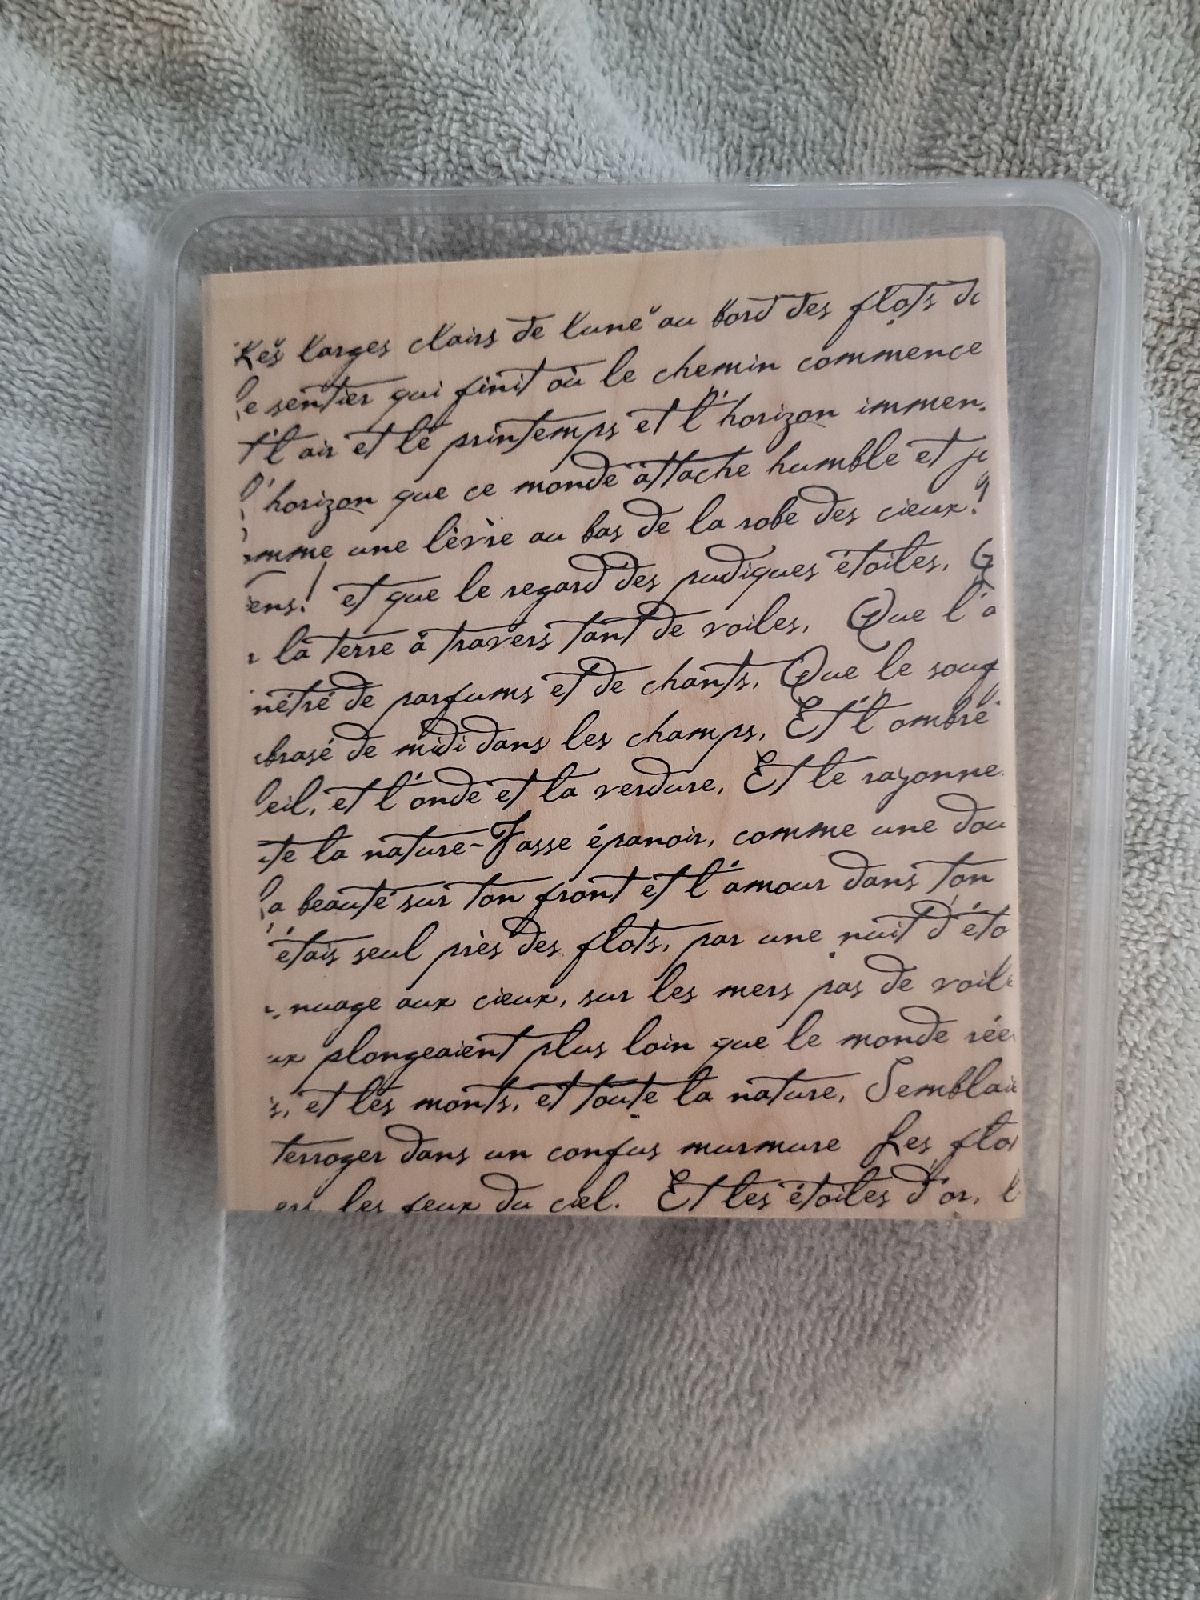 Les larges clairs de lune au bord des flots d
le sentier qui finit où le chemin commence
t l'air et le printemps et l'horizon immen
l'horizon que ce monde attache humble et j
mme une lèvre au bas de la robe des cieux!
ens! et que le regard des pudiques étoiles, Q
r la terre à travers tant de voiles, Que l'a
nétré de parfums et de chants, Que le souf
brasé de midi dans les champs, Et l'ombre
leil, et l'onde et la verdure, Et le rayonne
te la nature-Fasse épanoir, comme une dou
la beauté sur ton front et l'amour dans ton
'étais seul près des flots, par une nuit d'éto
nuage aux cieux, sur les mers pas de voil
ux plongeaient plus loin que le monde rée
s, et les monts, et toute la nature, Semblai
terroger dans un confus murmure Les flo
les feux du ciel. Et les étoiles d'or, l